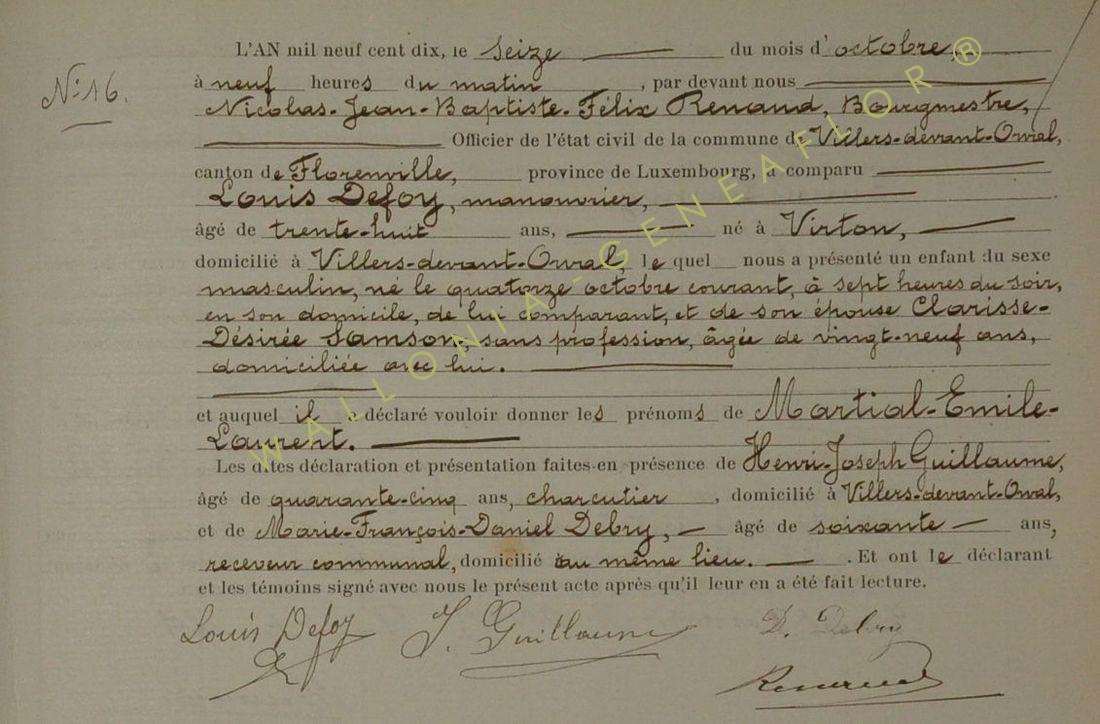 L'AN mil neuf cent dix, le seize du mois d'octobre,
N° 16. à neuf heures du matin, par devant nous
Nicolas-Jean-Baptiste-Félix Renaud, Bourgmestre,
Officier de l'état civil de la commune de Villers-devant-Orval,
canton de Florenville, province de Luxembourg, a comparu
Louis Defoy, manouvrier,
âgé de trente-huit ans, né à Virton,
domicilié à Villers-devant-Orval, le quel nous a présenté un enfant du sexe
masculin, né le quatorze octobre courant, à sept heures du soir,
en son domicile, de lui comparant, et de son épouse Clarisse-
Désirée Samson, sans profession, âgée de vingt-neuf ans,
domiciliée avec lui.
et auquel il a déclaré vouloir donner les prénoms de Martial-Emile-
Laurent.
Les dites déclaration et présentation faites en présence de Henri-Joseph Guillaume,
âgé de quarante-cinq ans, charcutier, domicilié à Villers-devant-Orval,
et de Marie-François-Daniel Debry, âgé de soixante ans,
receveur communal, domicilié au même lieu. Et ont le déclarant
et les témoins signé avec nous le présent acte après qu'il leur en a été fait lecture.
Louis Defoy J. Guillaume D. Debry
Renaud
WALLONIA-GENEAFLOR ®